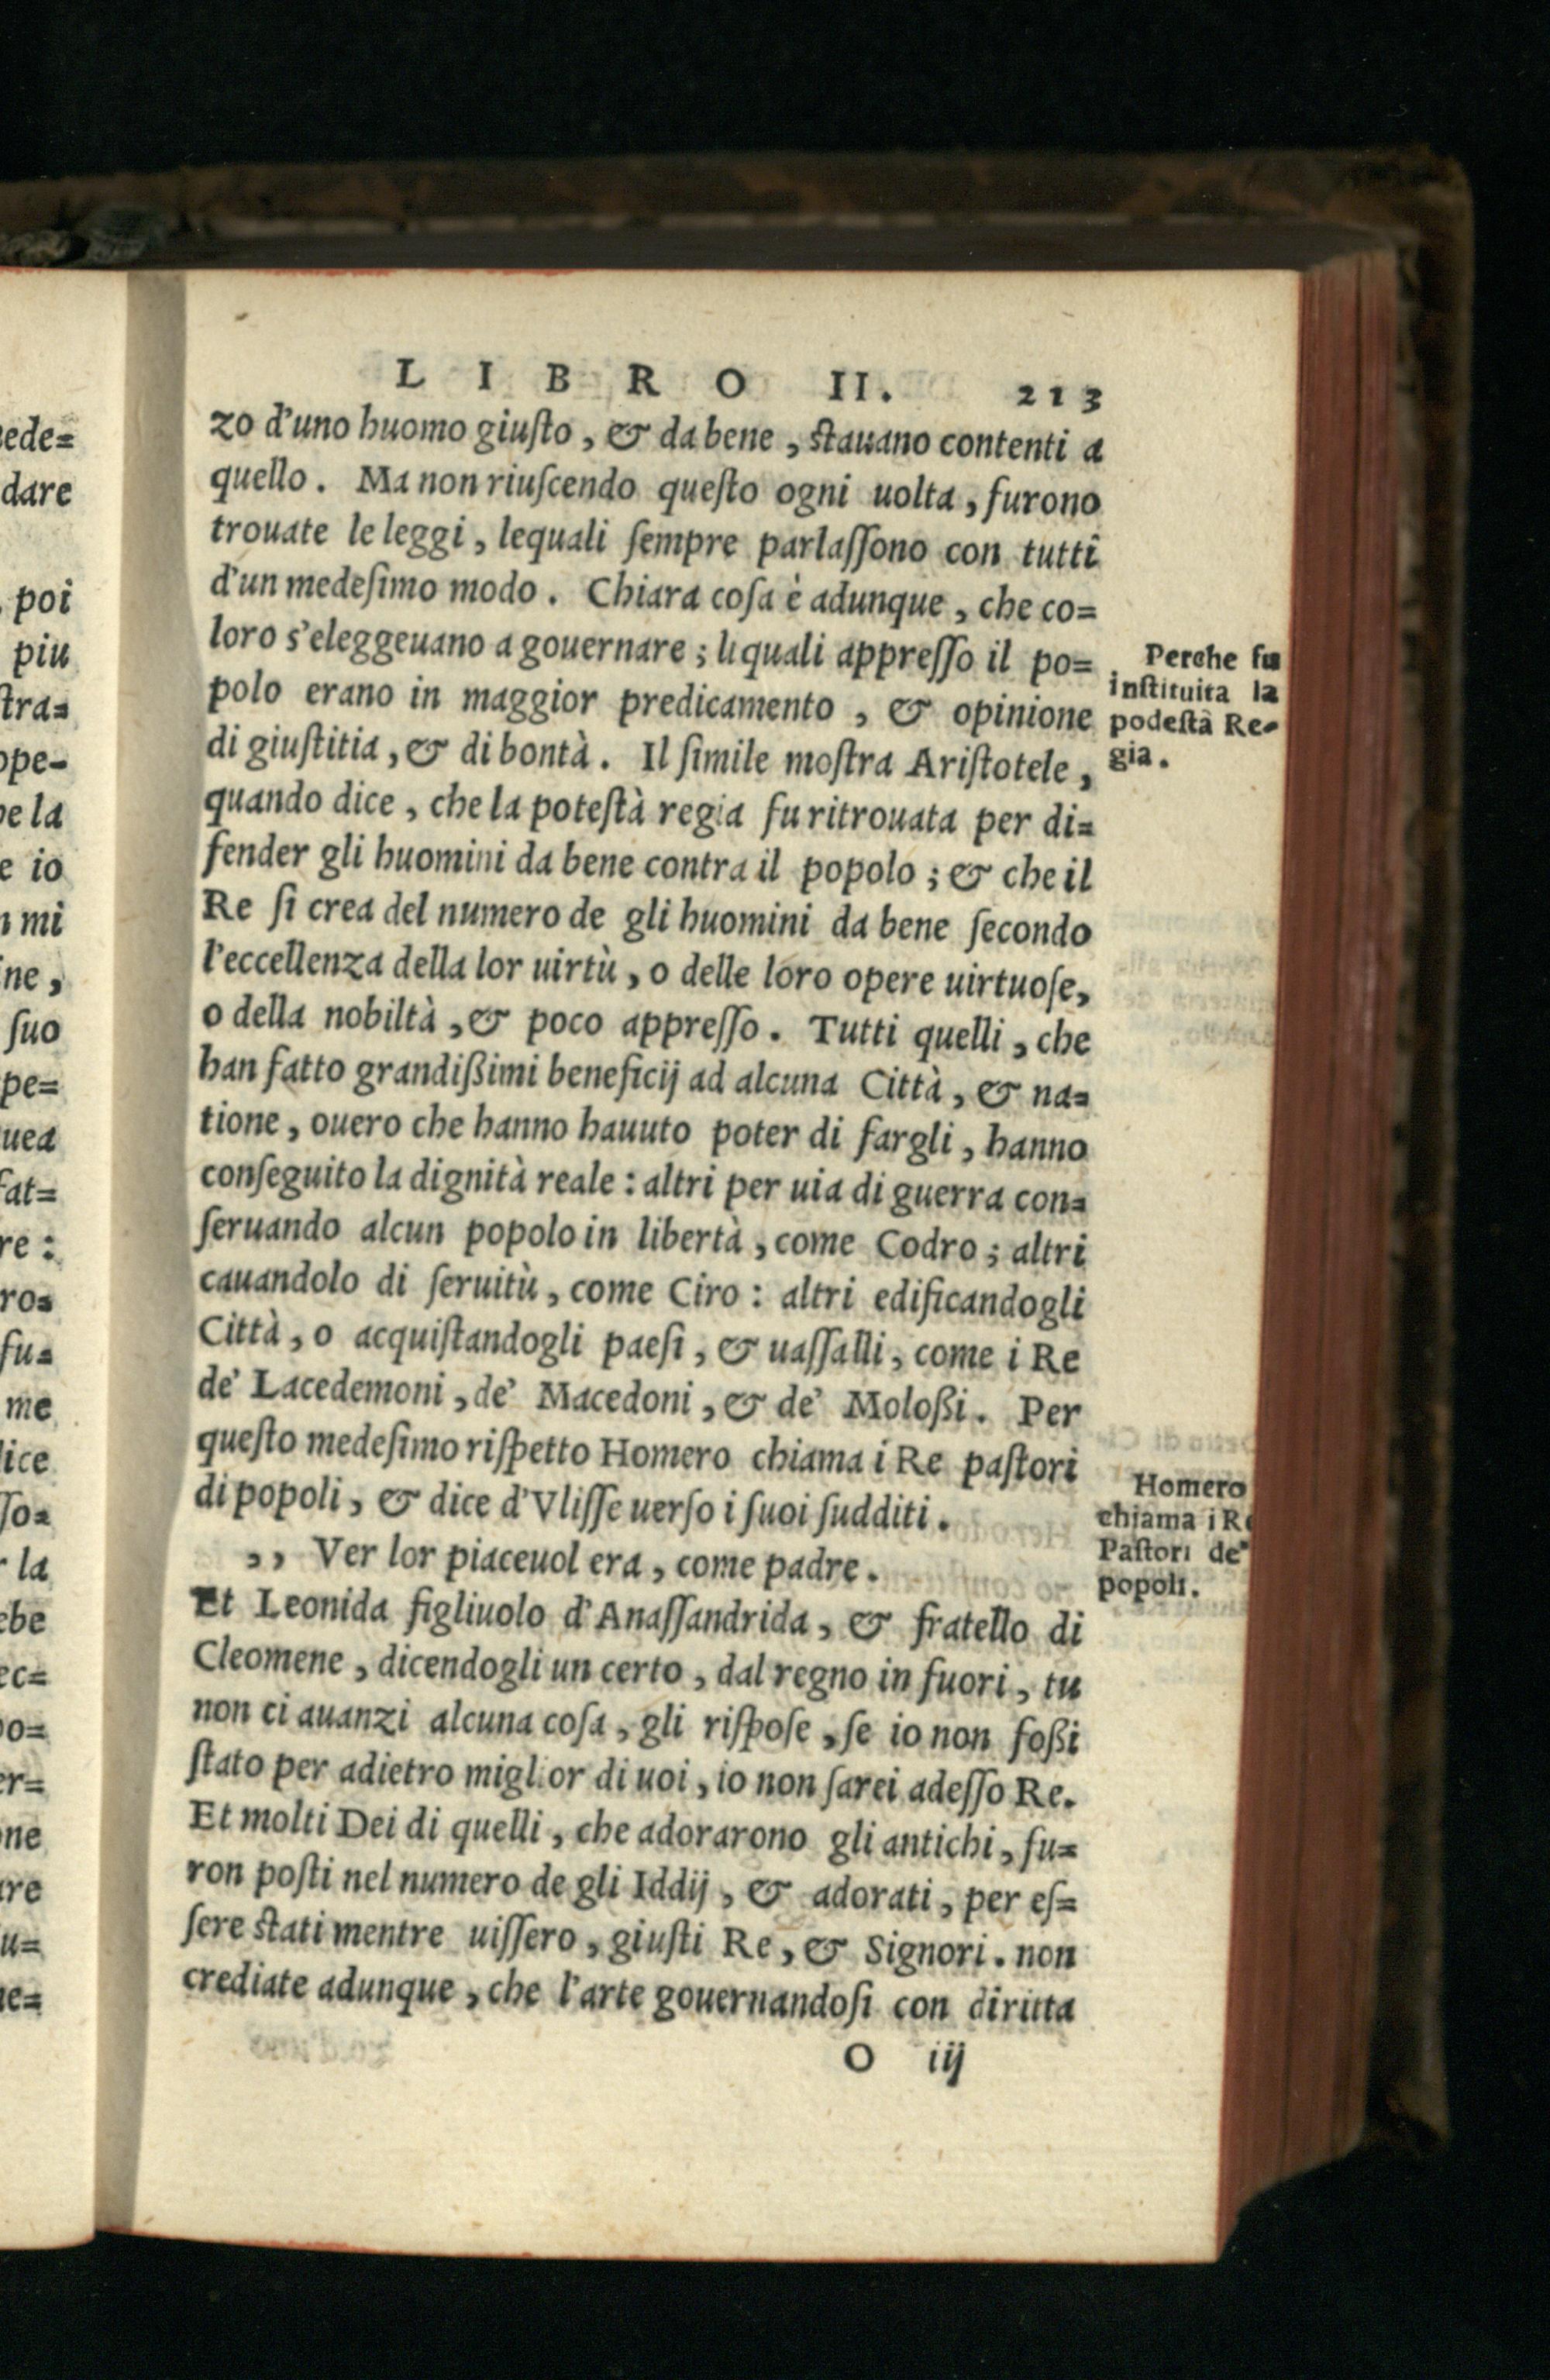 LIBRO II. 213
zo d'uno huomo giuſto, & da bene, ſtauano contenti a
quello. Ma non riuſcendo queſto ogni uolta, furono
trouate le leggi, lequali ſempre parlaſſono con tutti
d'un medeſimo modo. Chiara coſa è adunque, che co=
loro s'eleggeuano a gouernare; li quali appreſſo il po=
polo erano in maggior predicamento, & opinione
di giuſtitia, & di bontà. Il ſimile moſtra Ariſtotele,
quando dice, che la poteſtà regia fu ritrouata per di=
fender gli huomini da bene contra il popolo; & che il
Re ſi crea del numero de gli huomini da bene ſecondo
l'eccellenza della lor uirtù, o delle loro opere uirtuoſe,
o della nobiltà, & poco appreſſo. Tutti quelli, che
han fatto grandißimi beneficij ad alcuna Città, & na=
tione, ouero che hanno hauuto poter di fargli, hanno
conſeguito la dignità reale: altri per uia di guerra con=
ſeruando alcun popolo in libertà, come Codro; altri
cauandolo di ſeruitù, come Ciro: altri edificandogli
Città, o acquiſtandogli paeſi, & uaſſalli, come i Re
de' Lacedemoni, de' Macedoni, & de' Moloßi. Per
queſto medeſimo riſpetto Homero chiama i Re paſtori
di popoli, & dice d'Vliſſe uerſo i ſuoi ſudditi.
,, Ver lor piaceuol era, come padre.
Et Leonida figliuolo d'Anaſſandrida, & fratello di
Cleomene, dicendogli un certo, dal regno in fuori, tu
non ci auanzi alcuna coſa, gli riſpoſe, ſe io non foßi
ſtato per adietro miglior di uoi, io non ſarei adeſſo Re.
Et molti Dei di quelli, che adorarono gli antichi, fu=
ron poſti nel numero de gli Iddij, & adorati, per eſ=
ſere ſtati mentre uiſſero, giuſti Re, & Signori. non
crediate adunque, che l'arte gouernandoſi con diritta
O iij
Perche fu
inſtituita la
podeſtà Re-
gia.
Homero
chiama i Re
Paſtori de'
popoli.
ede=
dare
poi
piu
ſtra=
ope-
be la
e io
mi
ine,
ſuo
pe=
uea
fat=
re:
ro=
fu=
me
dice
ſſo=
la
ebe
ec=
po=
er=
one
are
u=
ne=